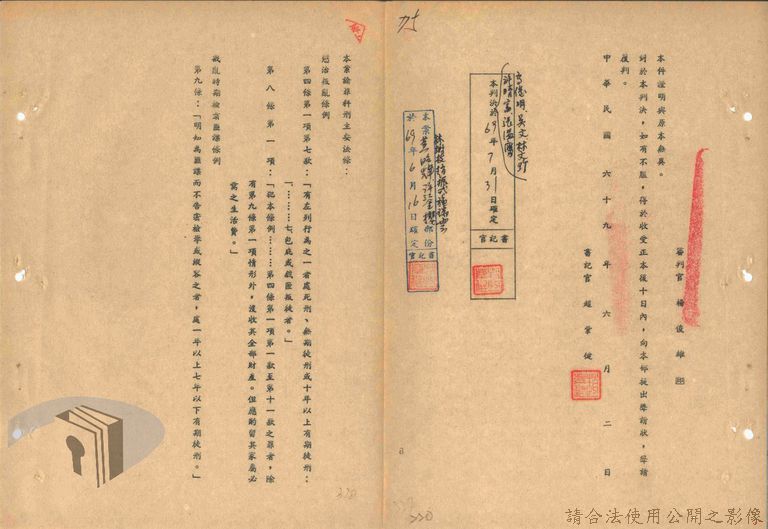 審判官 楊俊雄
本件證明與原本無異。
對於本判決,如有不服,得於收受正本後十日內,向本部提出聲請狀,聲請
覆判。
中華民國六十九年六月二日
書記官 趙業健
高俊明、吳文、林文珍
許晴富、張溫鷹
本判決於69年7月31日確定
書記官
本案黃昭輝
部份
於69年6月16日確定
書記官
本案論罪科刑主要法條:
懲治叛亂條例
第四條第一項第七款:「有左列行為之一者處死刑、無期徒刑或十年以上有期徒刑:
「……七包庇或藏匿叛徒者。」
第八條第一項:「犯本條例……第四條第一項第一款至第十一款之罪者,除
有第九條第一項情形外,沒收其全部財產。但應酌留其家屬必
需之生活費。」
戡亂時期檢肅匪諜條例
第九條:「明知為匪諜而不告密檢舉或縱容之者,處一年以上七年以下有期徒刑。」
320
請合法使用公開之影像